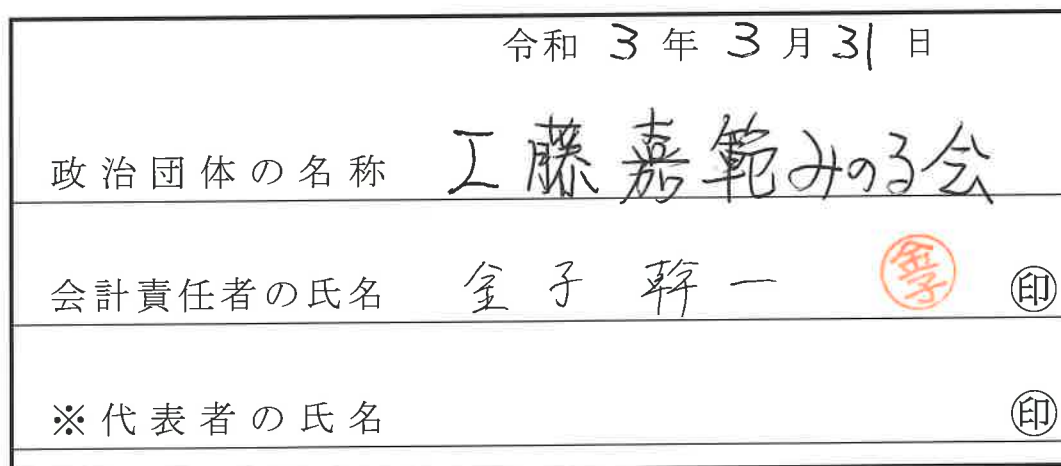 令和 3 年 3 月 31 日
政治団体の名称 工藤嘉範みのる会
会計責任者の氏名 金子 幹一 金子 ㊞
※代表者の氏名 ㊞